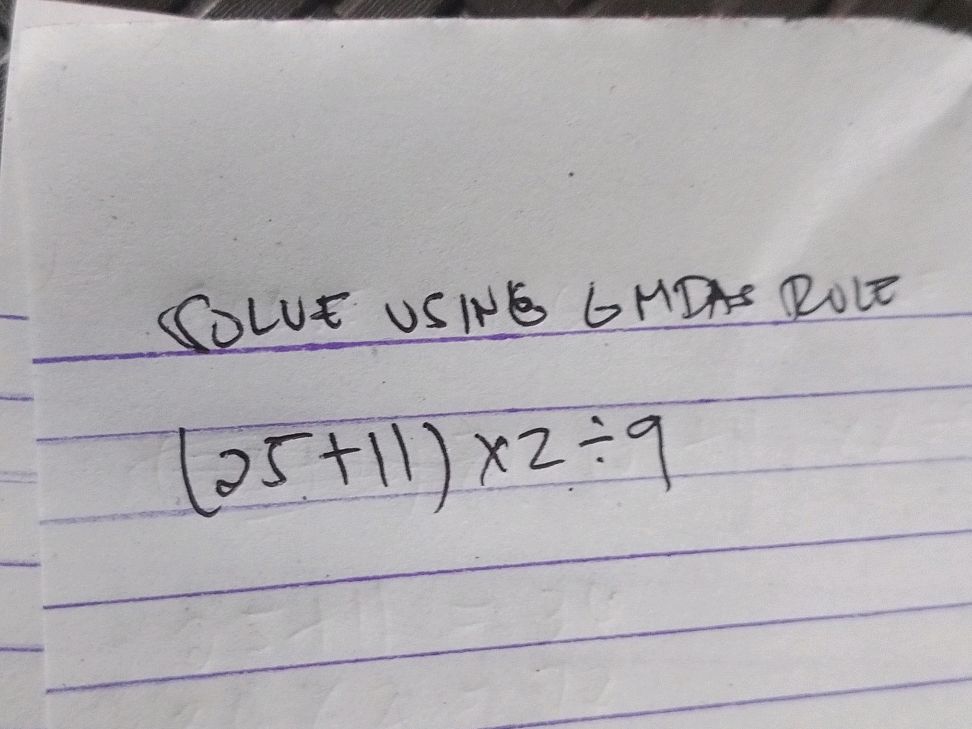 SOLVE USING GMDAS RULE
(25+11)×2÷9